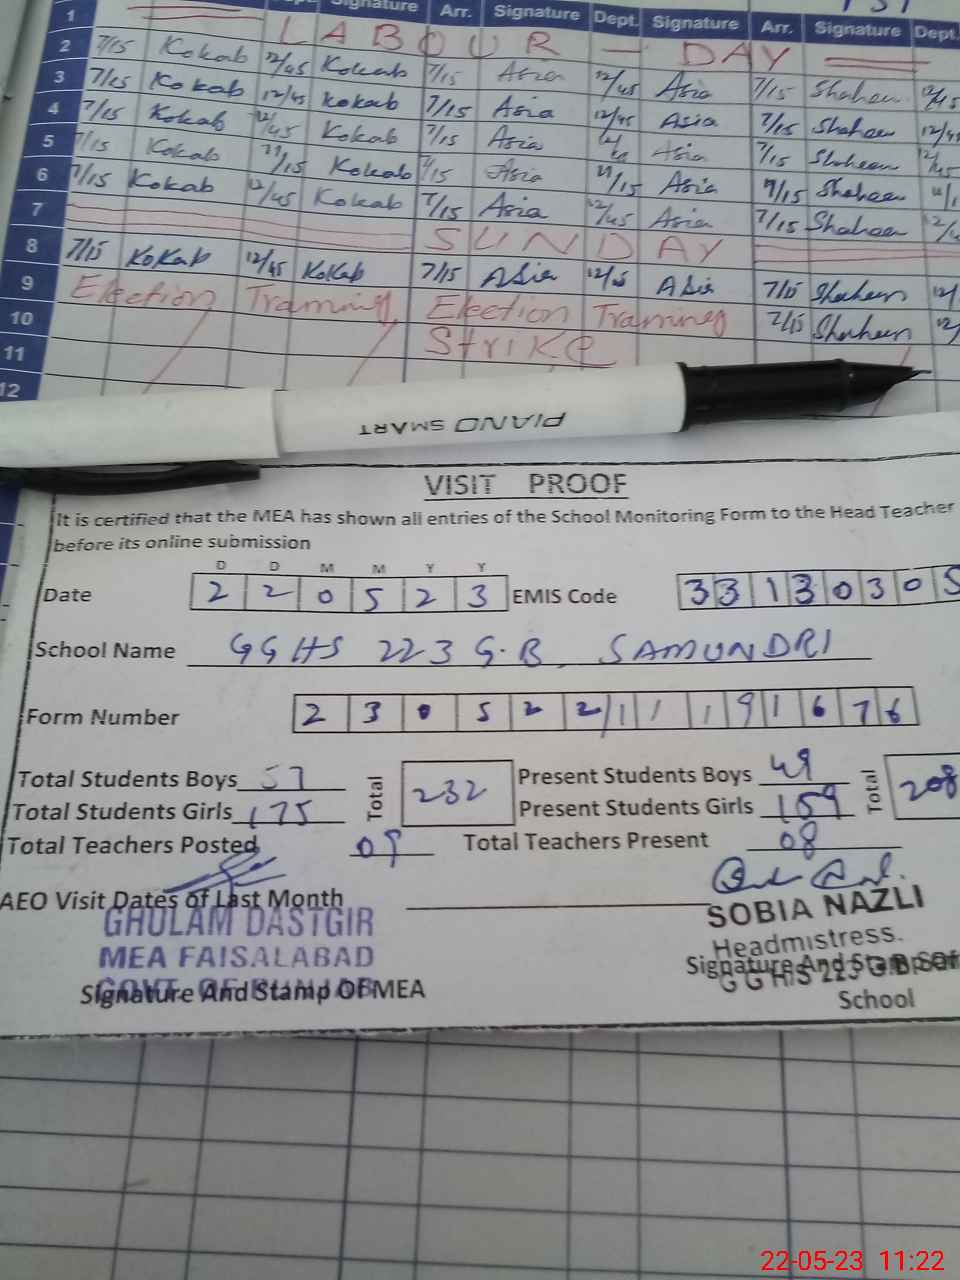 Signature Arr. Signature Dept. Signature Arr. Signature Dept.
1 LABOUR - DAY
2 7/15 Kokab 12/45 Kokab 7/15 Asia 12/45 Asia 7/15 Shaheen 12/45
3 7/15 Kokab 12/45 Kokab 7/15 Asia 12/45 Asia 7/15 Shaheen 12/45
4 7/15 Kokab 12/45 Kokab 7/15 Asia 12/ Asia 7/15 Shaheen 12/45
5 7/15 Kokab 11/15 Kokab 7/15 Asia 11/15 Asia 7/15 Shaheen 11/1
6 7/15 Kokab 12/45 Kokab 7/15 Asia 12/45 Asia 7/15 Shaheen 12/4
7 SUNDAY
8 7/15 Kokab 12/45 Kokab 7/15 Asia 12/45 Asia 7/15 Shaheen 12/
9 Election Traming Election Traming 7/15 Shaheen 12/
10 Strike
11
12
PIANO SMART
VISIT PROOF
It is certified that the MEA has shown all entries of the School Monitoring Form to the Head Teacher
before its online submission
D D M M Y Y
Date 2 2 0 5 2 3 EMIS Code 3 3 1 3 0 3 0 5
School Name GGHS 223 G.B. SAMUNDRI
Form Number 2 3 0 5 2 2 1 1 1 9 1 6 7 6
Total Students Boys 57 Total 232 Present Students Boys 49 Total 208
Total Students Girls 175 Present Students Girls 159
Total Teachers Posted 09 Total Teachers Present 08
AEO Visit Dates of Last Month
GHULAM DASTGIR
MEA FAISALABAD
GOVT. OF PUNJAB
Signature And Stamp Of MEA
SOBIA NAZLI
Headmistress.
G G H/S 223 G B
Signature And Stamp Of
School
22-05-23 11:22